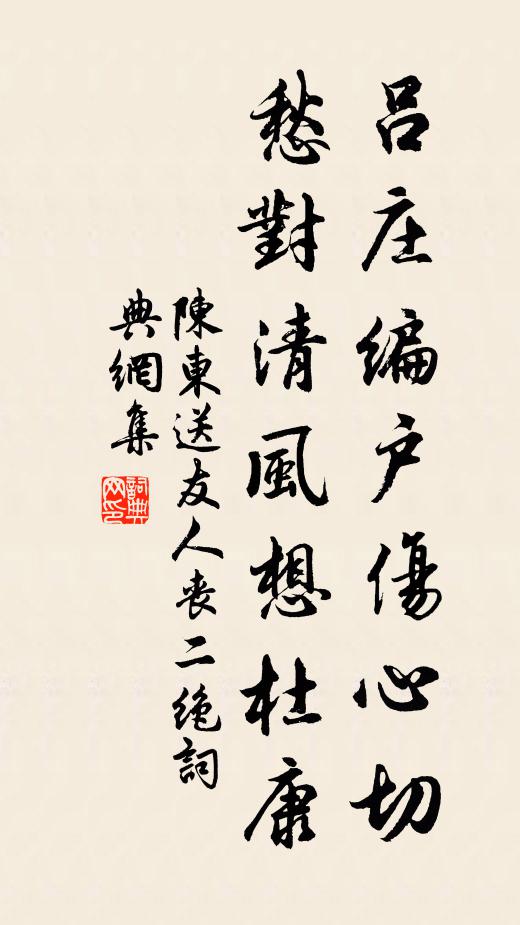 吕庄編户傷心切
愁對清風想杜康
陳東送友人丧二绝詞
典網集
詞典网印